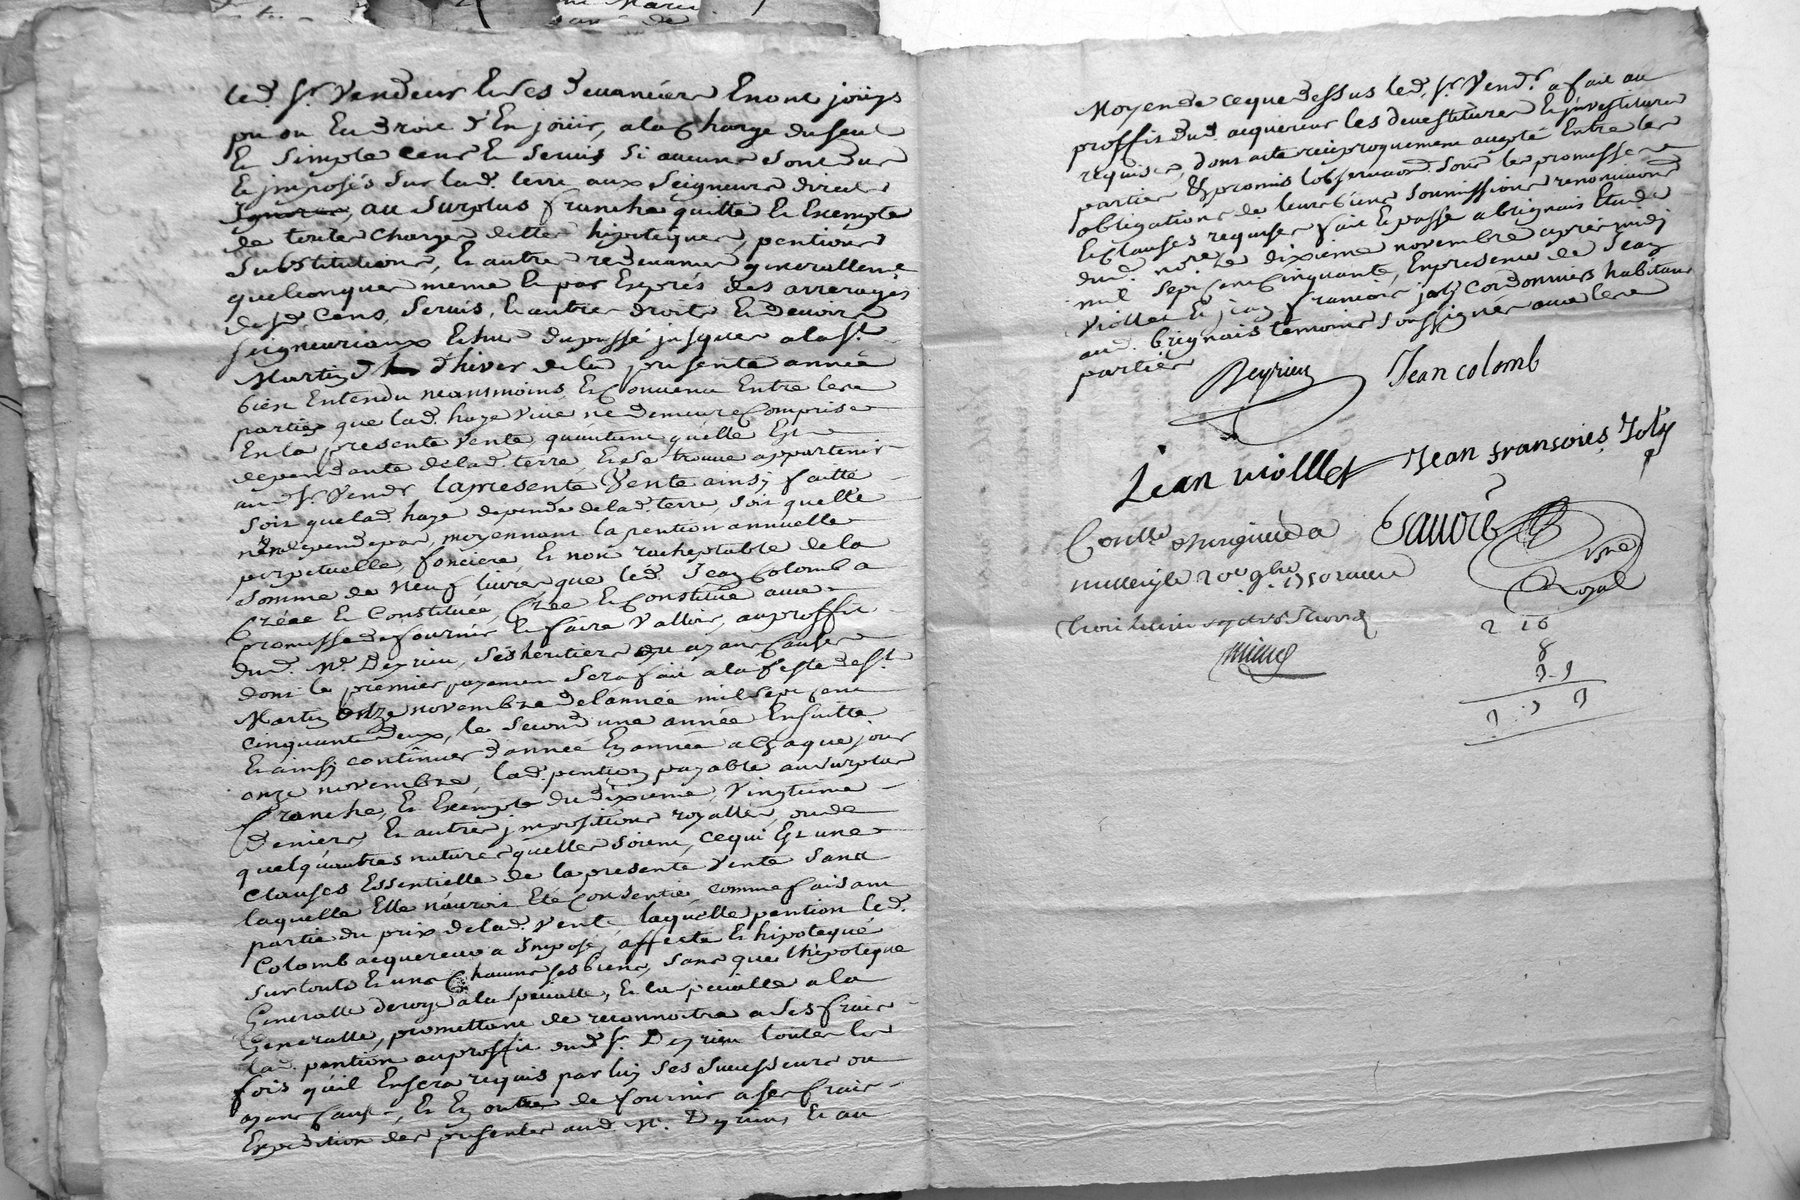 led. Sr. Vendeur Et ses devanciers En ont joüys
pu ou Eu droit d'En joüir, a la Charge du seul
Et simple cens Et servis si aucuns sont dus
Et jmposés sur lad. terre aux seigneurs directs
au surplus franche quitte Et Exempte
de toutes charges dettes hipoteques, pentions
substitutions, Et autres redevances generallemt.
quelconques meme Et par Exprés des arrerages
desd. Cens, servis, Et autres droits Et devoirs
seigneuriaux Echus du passé jusques a la St.
Martin d'hiver de la presente année
bien Entendu neansmoins Et Convenu Entre les
parties que lad. haye vive ne demeure Comprise
En la presente Vente qu'autant qu'elle Est
dependante de lad. terre, Et se trouve appartenir
aud. Sr. Vendr. la presente Vente ainsy faitte
soit que lad. haye depende de lad. terre, soit quelle
n'en depende pas, moyennant la pention annuelle
perpetuelle, fonciere, Et non racheptable de la
somme de Neuf livres que led. Jean Colomb a
Créée Et Constituée, Crée Et Constitue avec
promesse de fournir Et faire Valloir, au proffit
dud. Mr. Deyrieu, ses heritiers ou ayans Cause
dont le premier payement sera fait a la feste de St.
Martin onze novembre de l'année mil sept cent
cinquante deux, le second une année Ensuitte
Et ainsy continuer d'année En année a Chaque jour
onze novembre, lad. pention payable au surplus
franche, Et Exempte du dixieme, Vingtieme
Deniers Et autres jmpositions royalles, ou de
quelqu'autres natures quelles soient, ce qui Est une
clauses Essentielle de la presente Vente sans
laquelle Elle n'auroit Eté Consentie, comme faisant
partie du prix de lad. Vente, laquelle pention led.
Colomb acquereur a Jmposé, affecté Et hipotequé
sur touts Et uns Chacuns ses biens, sans que l'hipoteque
Generalle deroge a la specialle, Et la specialle a la
Generalle, promettant de reconnoitre a ses frais
lad. pention au proffit dud. Sr. Deyrieu toutes les
fois qu'il En sera requis par luy ses successeurs ou
ayans Cause, Et En outre de fournir a ses frais
Expedition des presentes aud. Mr. Deyrieu, Et au
Moyen de ce que dessus led. Sr. Vendr. a fait au
proffit dud. acquereur les devestitures Et jnvestitures
requises, dont acte reciproquement accepté Entre les
parties Et promis l'observation sous les promesses
obligations de leurs biens soumissions renonciations
Et clauses requises fait Et passé a brignais Etude
dud. nore. Le dixieme novembre apres midy
mil sept cent Cinquante, En presence de Jean
Viollet Et jean francois joly Cordonniers habitans
aud. brignais temoins soussignés avec les
parties
Deyrieu Jean colomb
Jean violllet Jean fransoies Joly
Contlé. a
le 20e. 9bre. 1750
Nre.
Royal
2 16
8